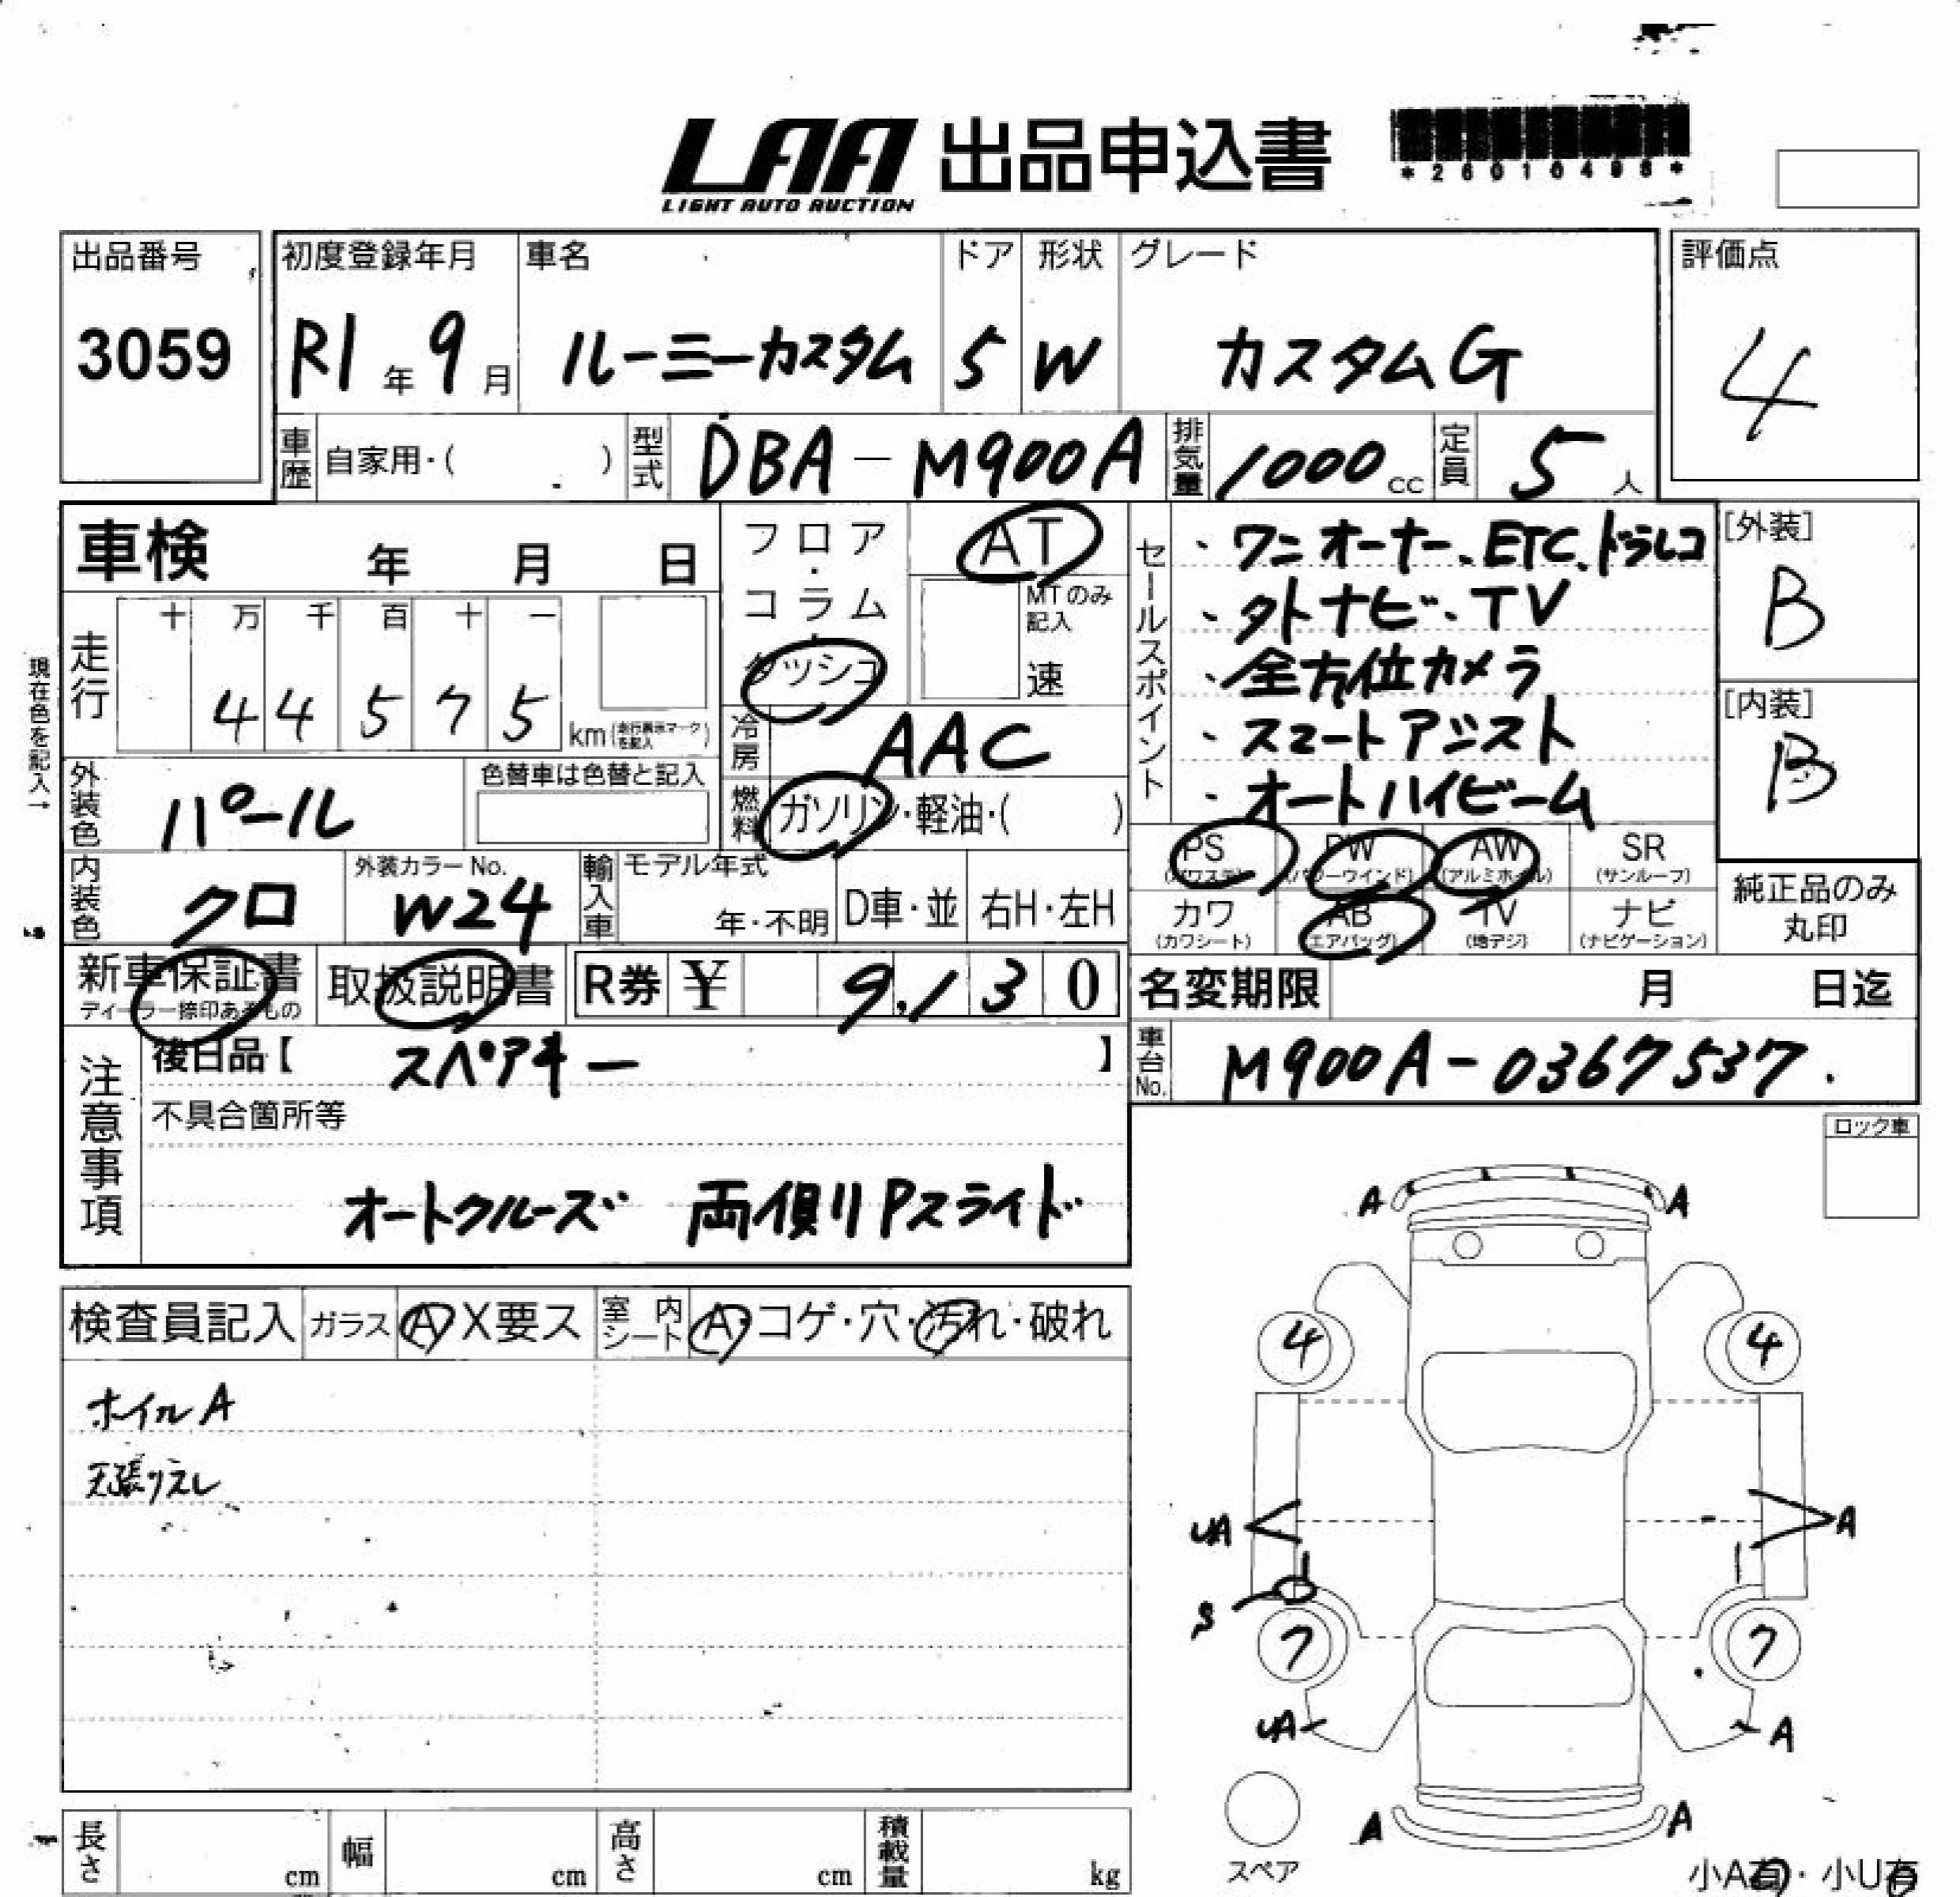 LAA 出品申込書
LIGHT AUTO AUCTION
出品番号
3059
初度登録年月
R1年9月
車名
ルーミーカスタム
ドア
5
形状
W
グレード
カスタムG
評価点
4
車歴 自家用・( )
型式 DBA-M900A
排気量 1000cc
定員 5人
車検 年 月 日
フロア・コラム・ダッシュ
AT
MTのみ記入
速
セールスポイント
・ワンオーナー、ETC、ドラレコ
・外ナビ、TV
・全方位カメラ
・スマートアシスト
・オートハイビーム
[外装]
B
[内装]
B
現在色を記入→
走行
十 万 千 百 十 一
4 4 5 7 5 km(走行表示マークを記入)
冷房 AAC
外装色 パール
色替車は色替と記入
燃料 ガソリン・軽油・( )
内装色 クロ
外装カラーNo.
W24
輸入車
モデル年式
年・不明
D車・並
右H・左H
PS (パワステ)
PW (パワーウインド)
AW (アルミホイル)
SR (サンルーフ)
カワ (カワシート)
AB (エアバッグ)
TV (地デジ)
ナビ (ナビゲーション)
純正品のみ
丸印
新車保証書
ディーラー捺印あるもの
取扱説明書
R券 ¥ 9,130
名変期限 月 日迄
注意事項
後日品【 スペアキー 】
不具合箇所等
オートクルーズ 両側Pスライド
車台No. M900A-0367537
ロック車
検査員記入
ガラス A X要ス
室内シート A・コゲ・穴・汚れ・破れ
ホイルA
A A
4 4
UA A
S
7 7
UA A
A A
スペア
小A有・小U有
長さ cm
幅 cm
高さ cm
積載量 kg